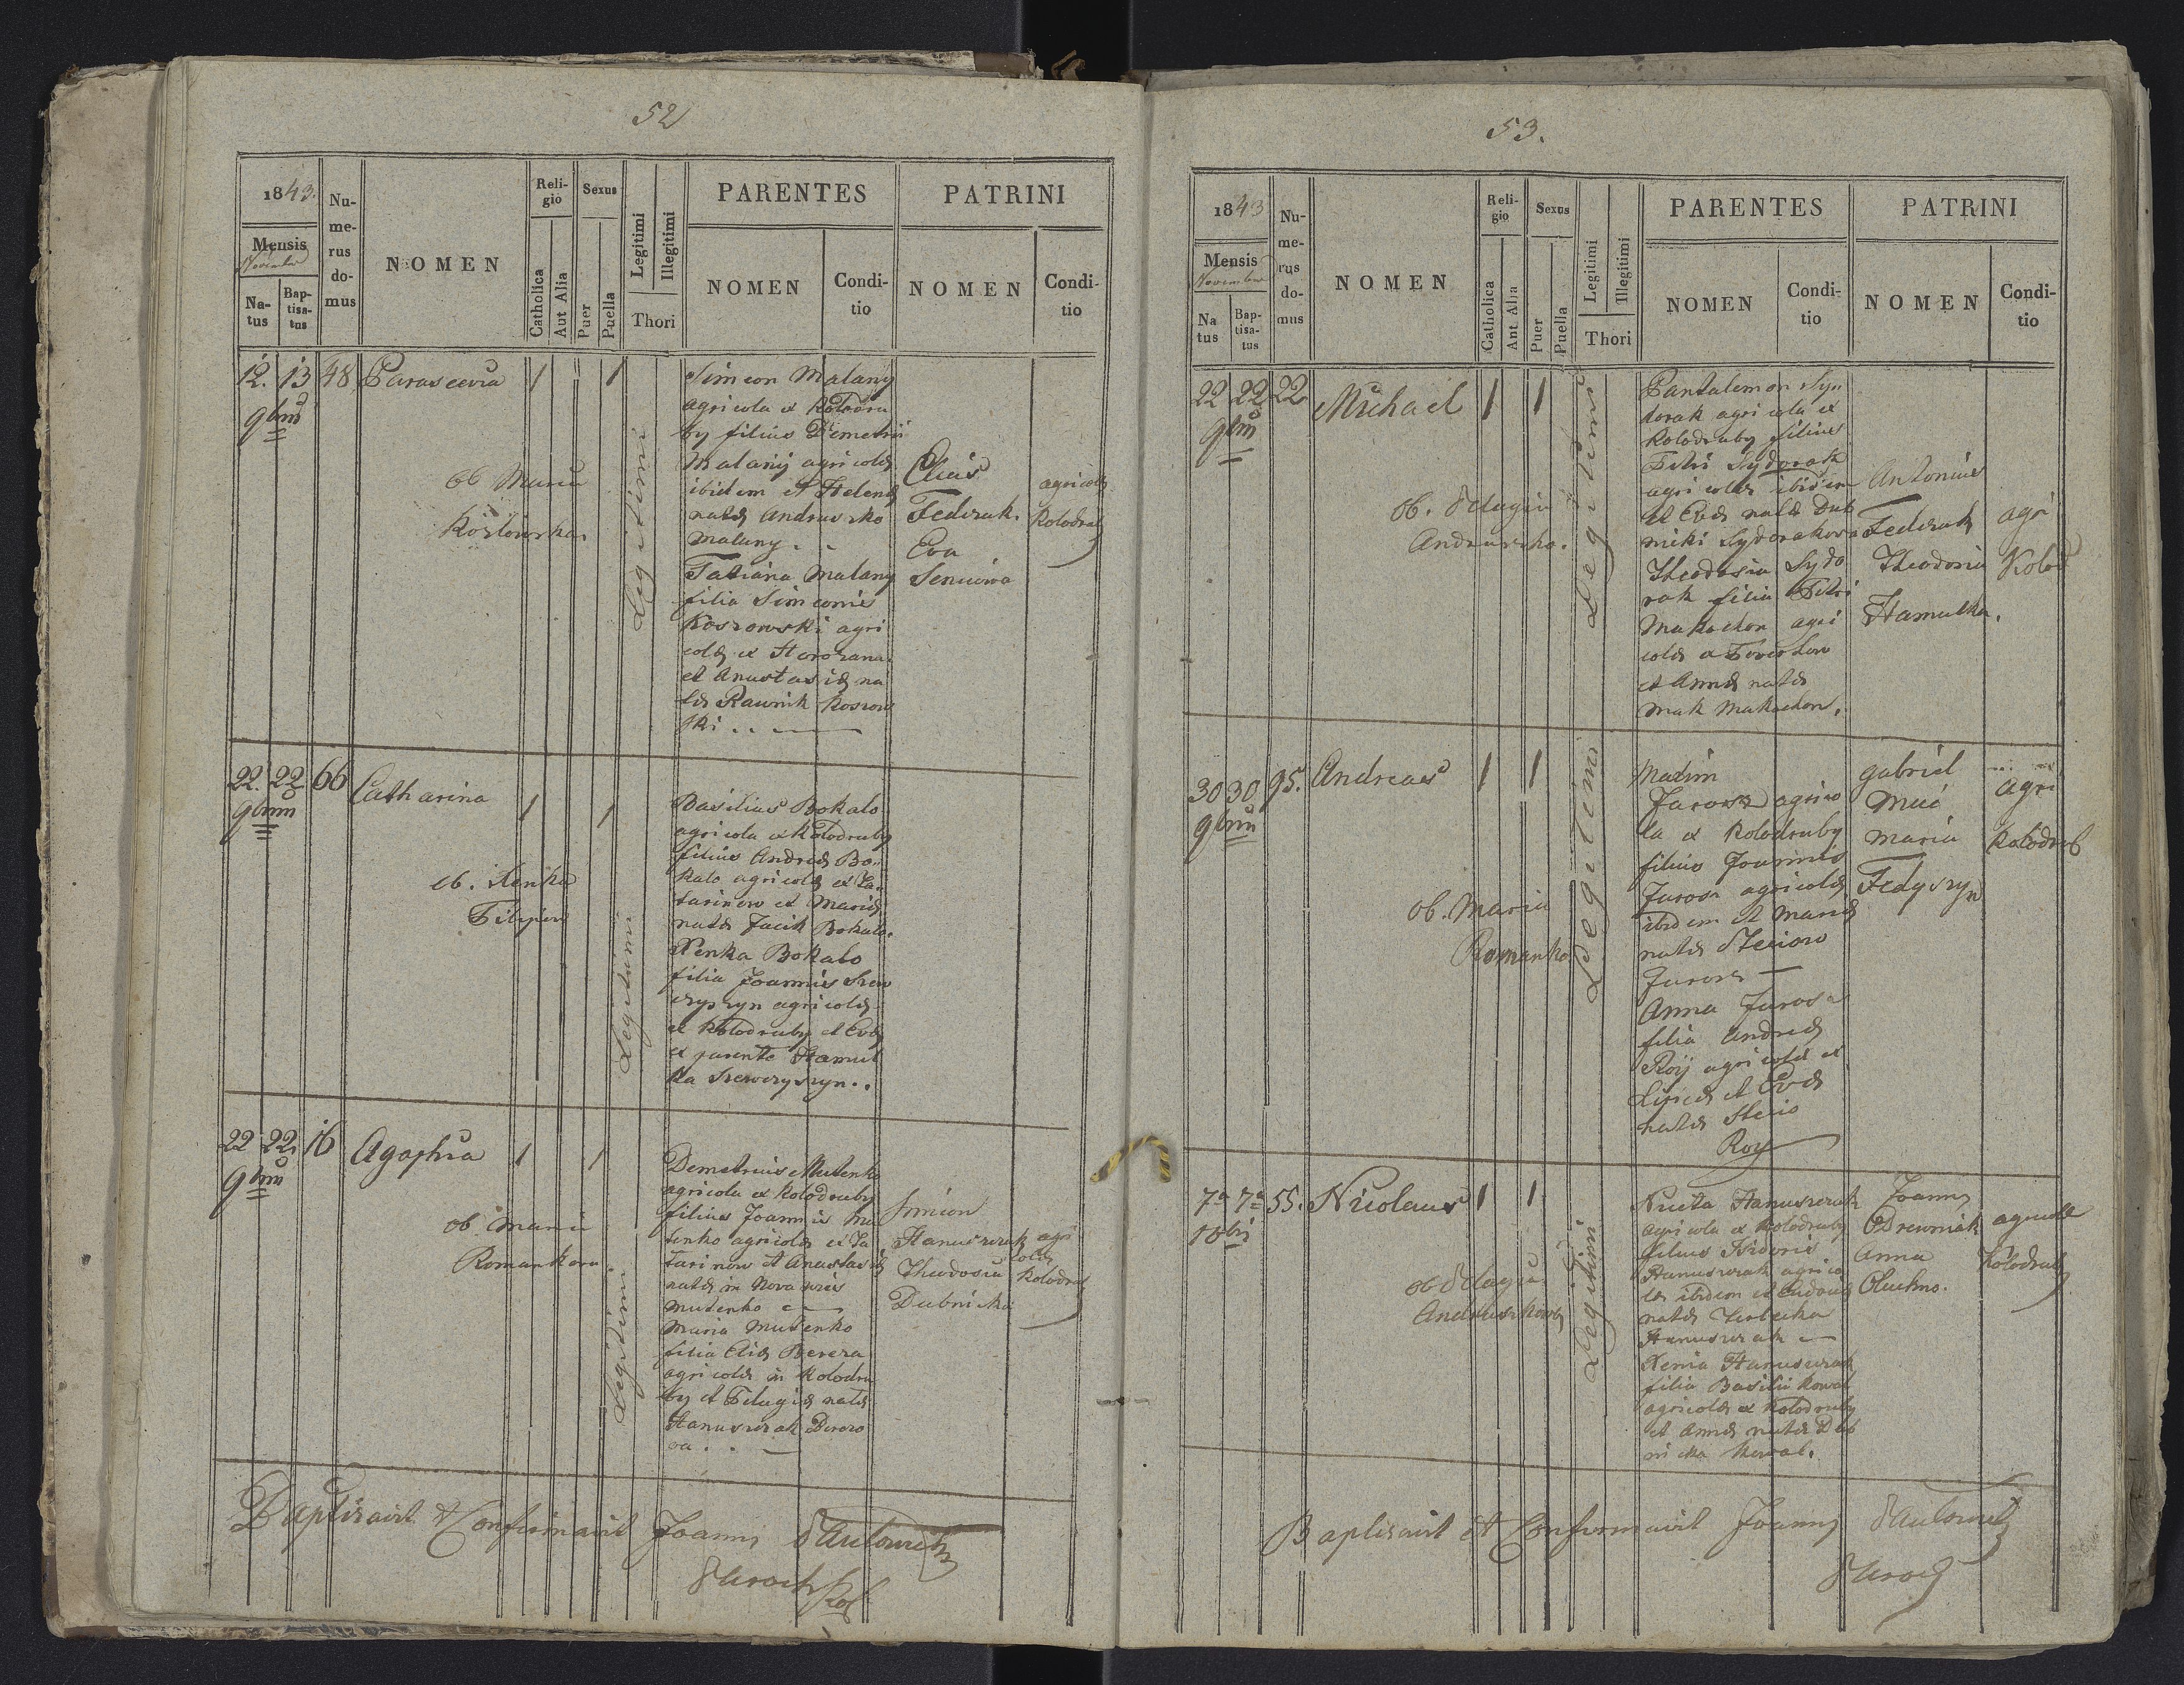 52
1843.
Mensis
November
Na-
tus
Bap-
tisa-
tus
Nu-
me-
rus
do-
mus
NOMEN
Reli-
gio
Catholica
Aut Alia
Sexus
Puer
Puella
Legitimi
Illegitimi
Thori
PARENTES
NOMEN
Condi-
tio
PATRINI
NOMEN
Condi-
tio
12. 13 48 Parascevia 1 1
9bris
ob Maria
Kozlowska
Legitimi
Simeon Malany
agricola ex Kolodru
by filius Demetrii
Malany agricolæ
ibidem et Helenæ
natæ Andruszko
Malany..
Tatiana Malany
filia Simeonis
Koszowski agri
colæ ex Horozana
et Anastasiæ na
tæ Rawnik Koszow
ski..
Elias
Federak.
Eva
Seniowa
agricolæ
Kolodrub
22. 22 66 Catharina 1 1
9bris
ob. Xenka
Filipiow
Legitimi
Basilius Bokalo
agricola ex Kolodruby
filius Andreæ Bo-
kalo agricolæ ex Ta-
tarinow et Mariæ
natæ Jacik Bokalo.
Xenka Bokalo
filia Joannis Szew
czyszyn agricolæ
ex Kolodruby et Evæ
ex parente Hamul
ka Szewczyszyn..
22 22. 16 Agaphia 1 1
9bris
ob Maria
Romankowa
Legitimi
Demetrius Mutenko
agricola ex Kolodruby
filius Joannis Mu
tenko agricolæ ex Ta
tarinow et Anastasiæ
natæ in Nova
Mutenko
Maria Mutenko
filia Eliæ Bereza
agricolæ in Kolodru
by et Pelagiæ natæ
Hanuszczak
Simion
Hanuszczak
Theodosia
Dubnicka
agri
colæ
Kolodrub
Baptisavit & Confirmavit Joannes
Paroch Kol
53.
1843
Mensis
November
Na
tus
Bap-
tisa-
tus
Nu-
me-
rus
do-
mus
NOMEN
Reli-
gio
Catholica
Aut Alia
Sexus
Puer
Puella
Legitimi
Illegitimi
Thori
PARENTES
NOMEN
Condi-
tio
PATRINI
NOMEN
Condi-
tio
22 22 22 Michael 1 1
9bris
ob. Pelagia
Andruszko.
Legitimi
Pantalemon Sy-
dorak agricola ex
Kolodruby filius
Petri Sydorak
agricolæ ibidem
et Evæ natæ Dub
nicki Sydorakowa
Theodosia Sydo
rak filia Petri
Makochon agri
colæ ex
et Annæ natæ
Mak Makochon.
Antonius
Federak
Theodosia
Hamulka.
agri
Kolod
30 30 95. Andreas 1 1
9bris
ob. Maria
Romanko
Legitimi
Maxim
Jarosz agrico
la ex Kolodruby
filius Joannis
Jarosz agricolæ
ibidem et Mariæ
natæ
Jarosz
Anna Jarosz
filia Andreæ
Roÿ agricolæ ex
et Evæ
natæ Stecio
Roy
Gabriel
Muc
Maria
Fedyszyn
agri
Kolodrub
7a 7a 55. Nicolaus 1 1
10bris
ob Pelagia
Andruszkowa
Legitimi
Nicita Hanuszczak
agricola ex Kolodruby
filius Isidoris
Hanuszczak agrico
læ ibidem et Eudociæ
natæ
Hanuszczak
Xenia Hanuszczak
filia Basilii Kowal
agricolæ ex Kolodruby
et Annæ natæ Dub
nicka Kowal.
Joannes
Drewniak
Anna
Oluchno.
agricolæ
Kolodrub
Baptisavit et Confirmavit Joannes
Paroch